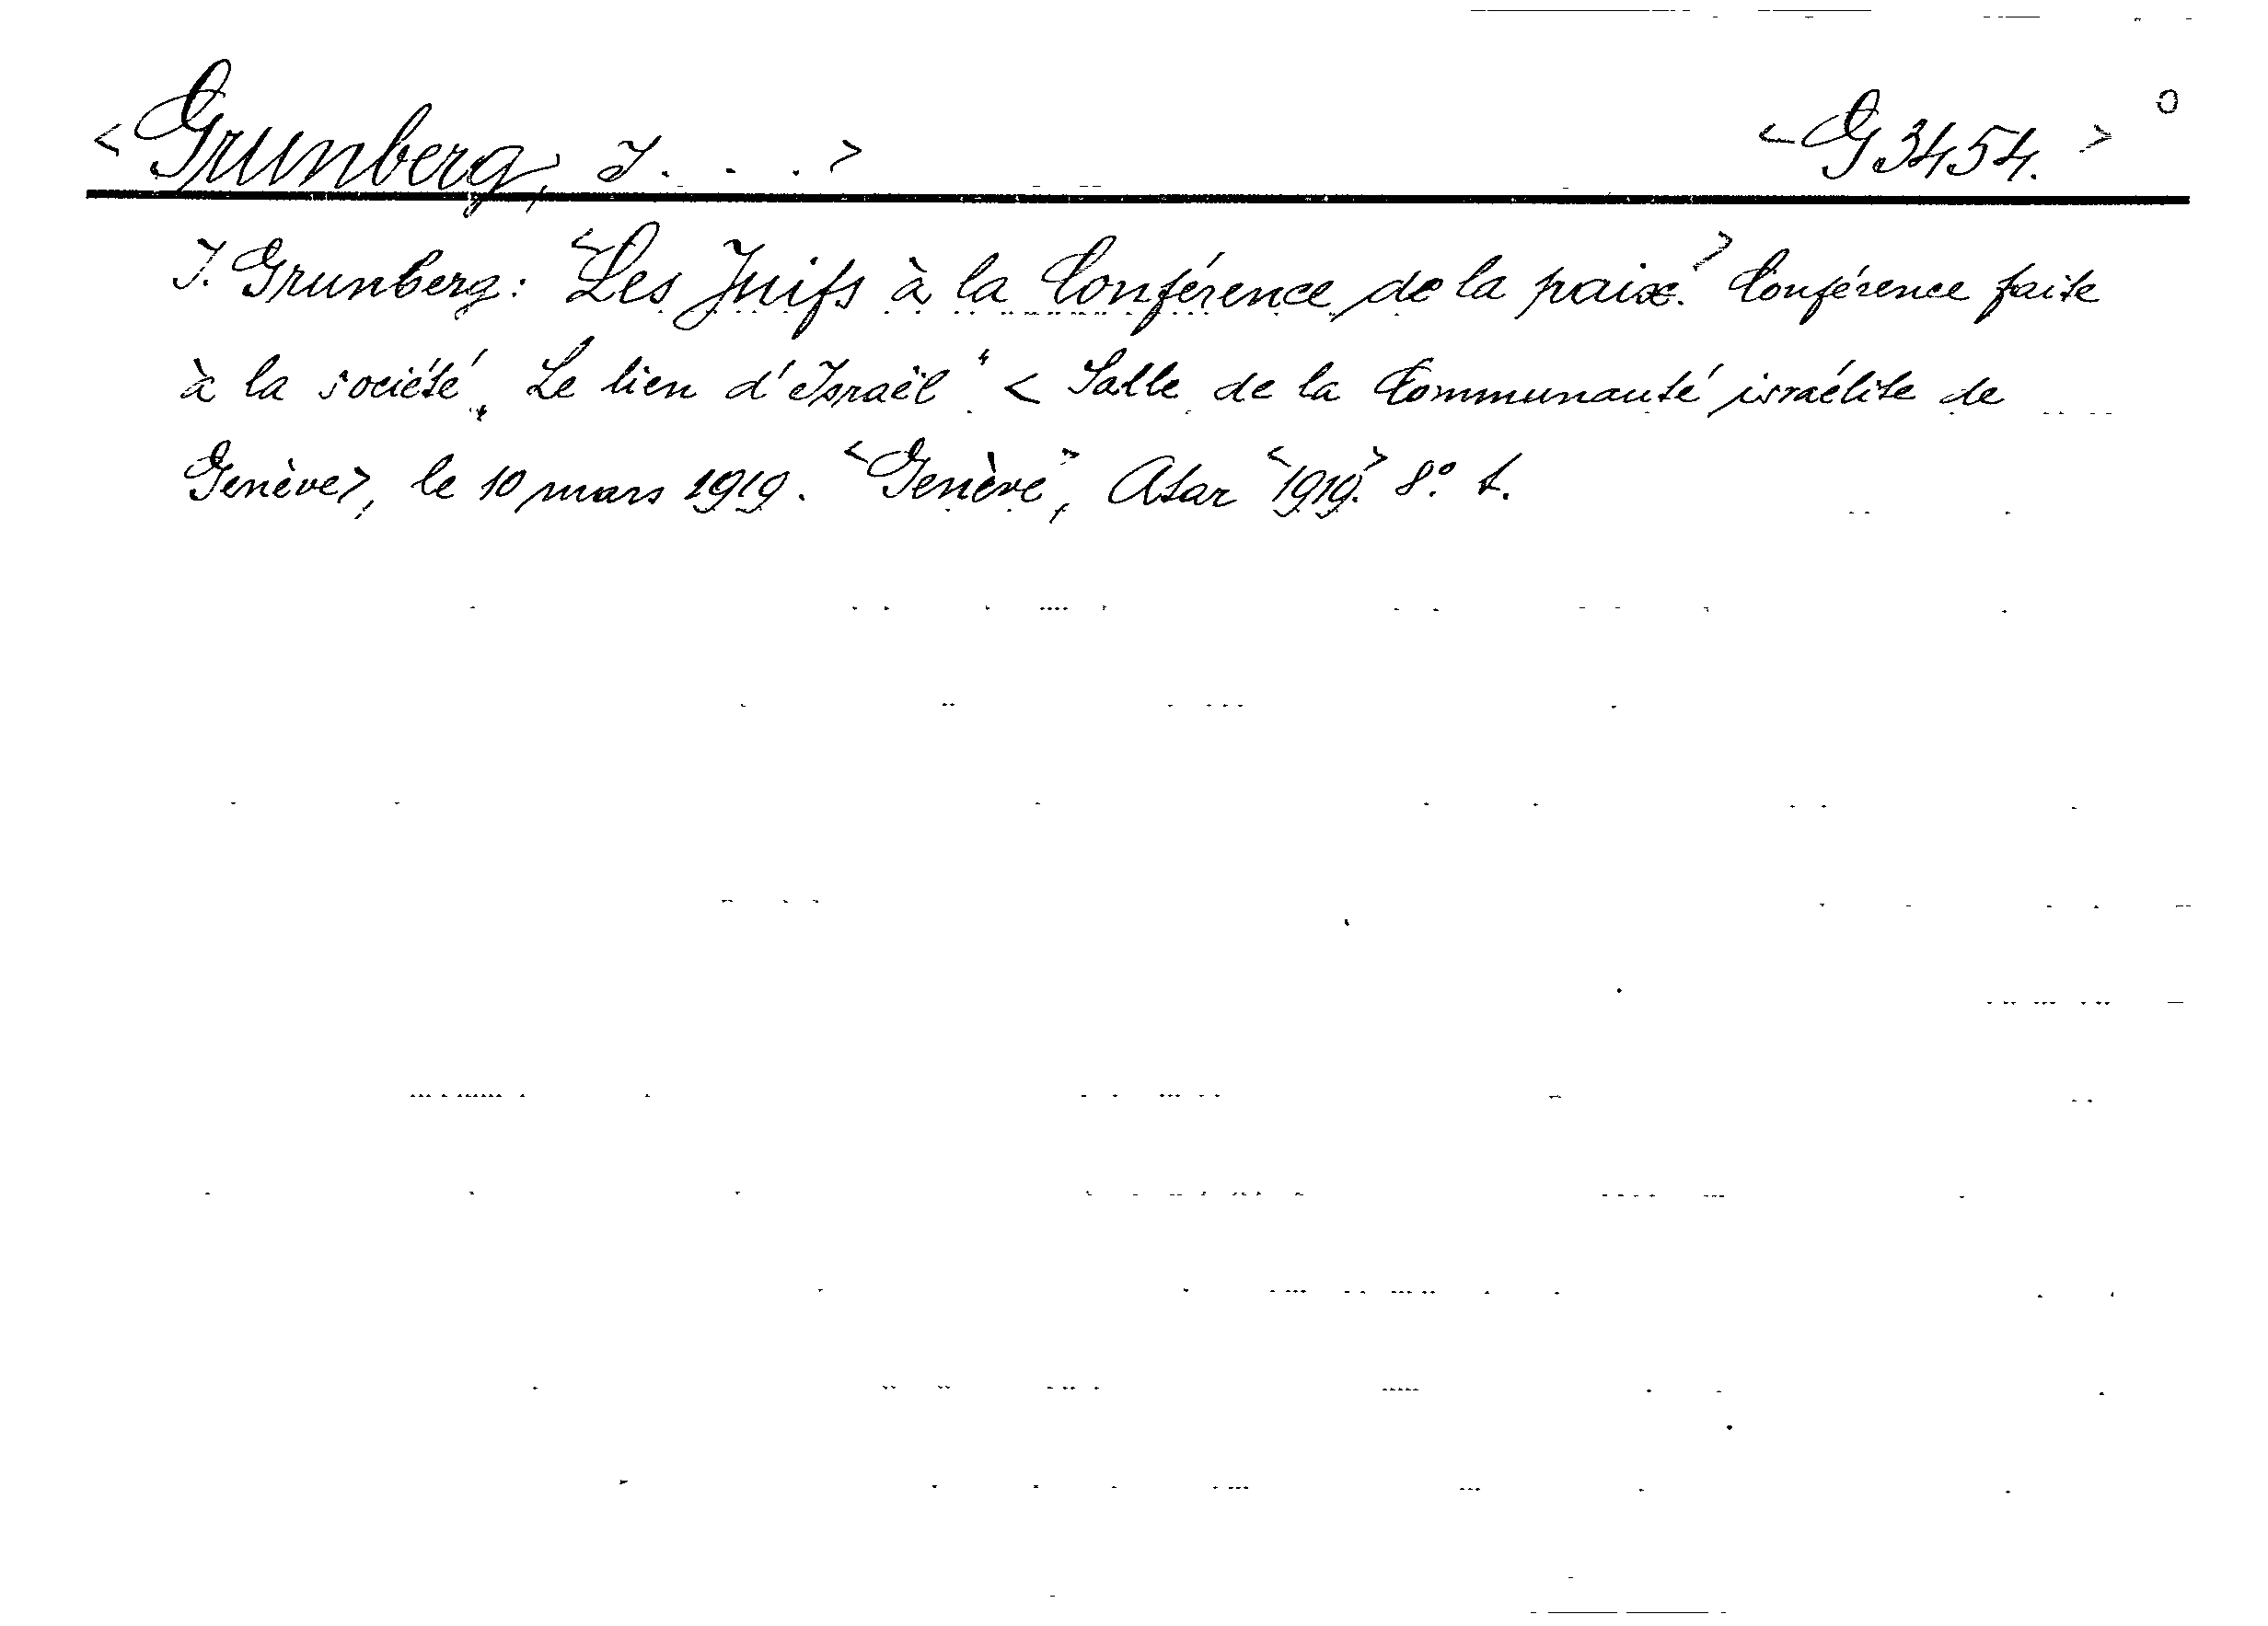 <Grunberg, J. . . .> <G 3454.> O
J. Grunberg: <Les Juifs à la Conférence de la paix.> Conférence faite
à la société „Le lien d'Israël“ < Salle de la Communauté israélite de
Genève>, le 10 mars 1919. <Genève>, Atar <1919.> 8°. t.